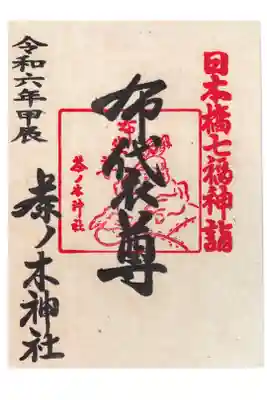 日本橋七福神詣
布袋尊
茶ノ木神社
令和六年甲辰
茶ノ木神社